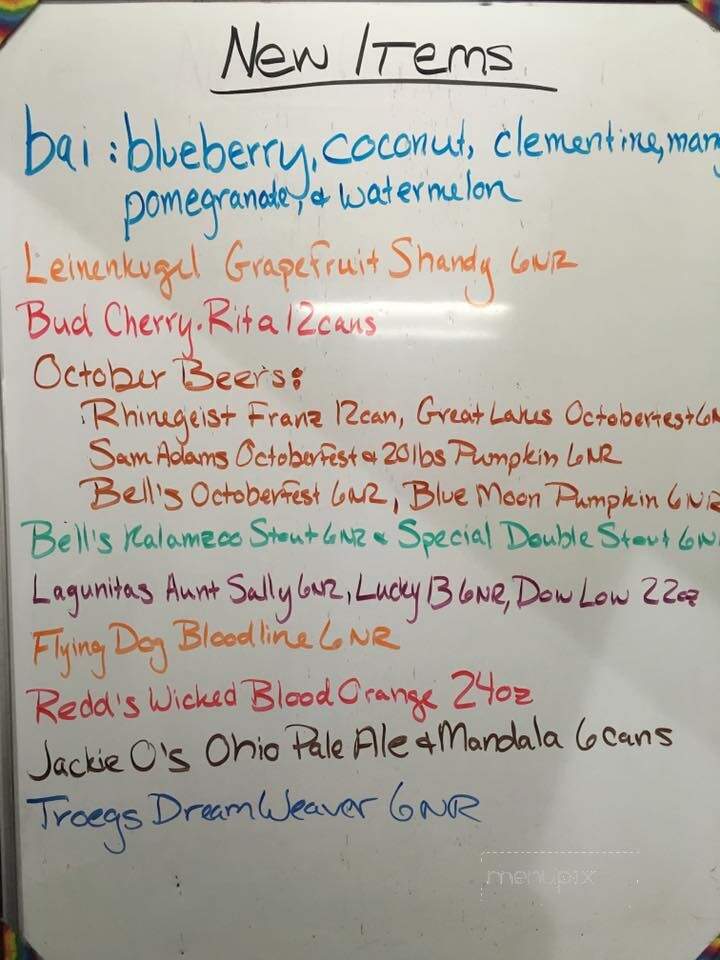 New Items
bai: blueberry, coconut, clementine, man
pomegranate, & watermelon
Leinenkugel Grapefruit Shandy 6NR
Bud Cherry-Rita 12cans
October Beers:
Rhinegeist Franz 12can, Great Lakes Octoberfest 6N
Sam Adams Octoberfest & 20lbs Pumpkin 6NR
Bell's Octoberfest 6NR, Blue Moon Pumpkin 6NR
Bell's Kalamzoo Stout 6NR & Special Double Stout 6N
Lagunitas Aunt Sally 6NR, Lucky 13 6NR, Dow Low 22oz
Flying Dog Bloodline 6NR
Redd's Wicked Blood Orange 24oz
Jackie O's Ohio Pale Ale & Mandala 6cans
Troegs DreamWeaver 6NR
menupix